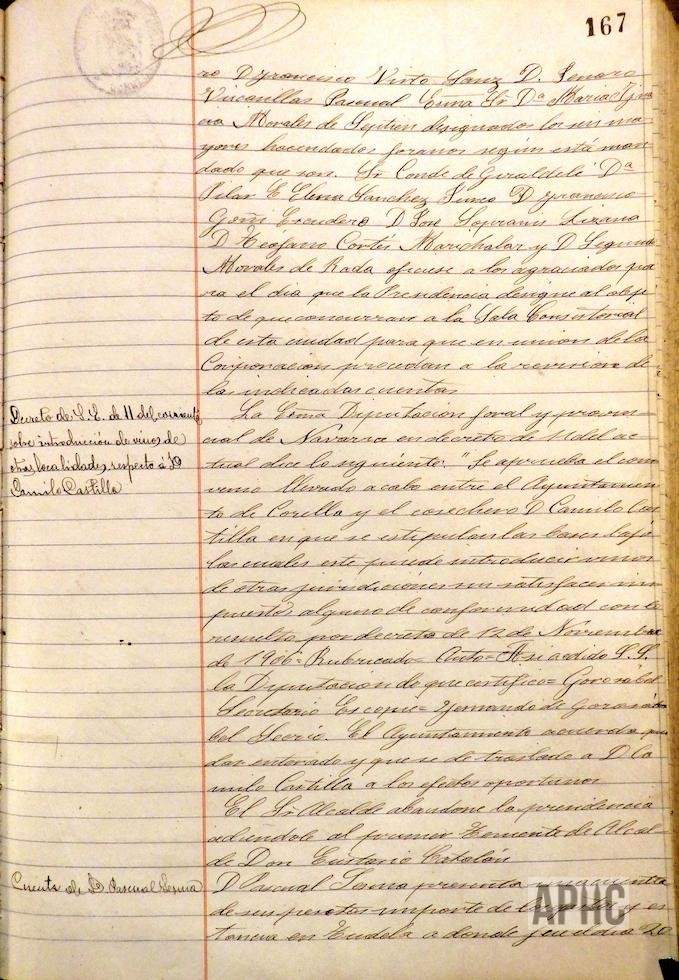 167
ro D Francisco Virto Sanz D. Genaro
Virconillas Pascual Exma Sra Dª Maria Igna
cia Morales de Septien designados los seis ma
yores hacendados foranos según está man
dado que son. Sr Conde de Giraldeli Dª
Pilar E Elena Sanchez D Francisco
Goñi Escudero D José Sopranis Lizana
D Teófano Cortés Marichalar y D Segundo
Morales de Rada ofíciese a los agraciados pa
ra el dia que la Presidencia designe al obje
to de que concurran a la Sala Consistorial
de esta ciudad para que en union de la
Corporacion procedan a la revision de
las indicadas cuentas
Decreto de S.E. de 11 del corriente
sobre introducción de vinos de
otras localidades respecto á D
Camilo Castilla
La Exma Diputacion foral y provin-
cial de Navarra en decreto de 11 del ac
tual dice lo siguiente: "Se aprueba el con
venio llevado a cabo entre el Ayuntamien
to de Corella y el cosechero D Camilo Cas
tilla en que se estipulan las bases bajo
las cuales este puede introducir vinos
de otras jurisdiciones sin satisfacer im
puesto alguno de conformidad con lo
resuelto por decreto de 12 de Noviembre
de 1906= Rubricado= Auto= Asi acidido S.S.
la Diputacion de que certifico= Gorosábel
Secretario Es copia= Fernando de Gorosá
bel Secrio. El Ayuntamiento acuerda que
dar enterado y que se de traslado a D Ca
milo Castilla a los efectos oportunos
El Sr Alcalde abandona la presidencia
cediendole al primer Teniente de Alcal-
de Don Eustasio Catalán
Cuenta de D Pascual Serna
D Pascual Serna presenta cuenta
de seis pesetas importe de y es
tancia en Tudela a donde fue el dia 20
APHC